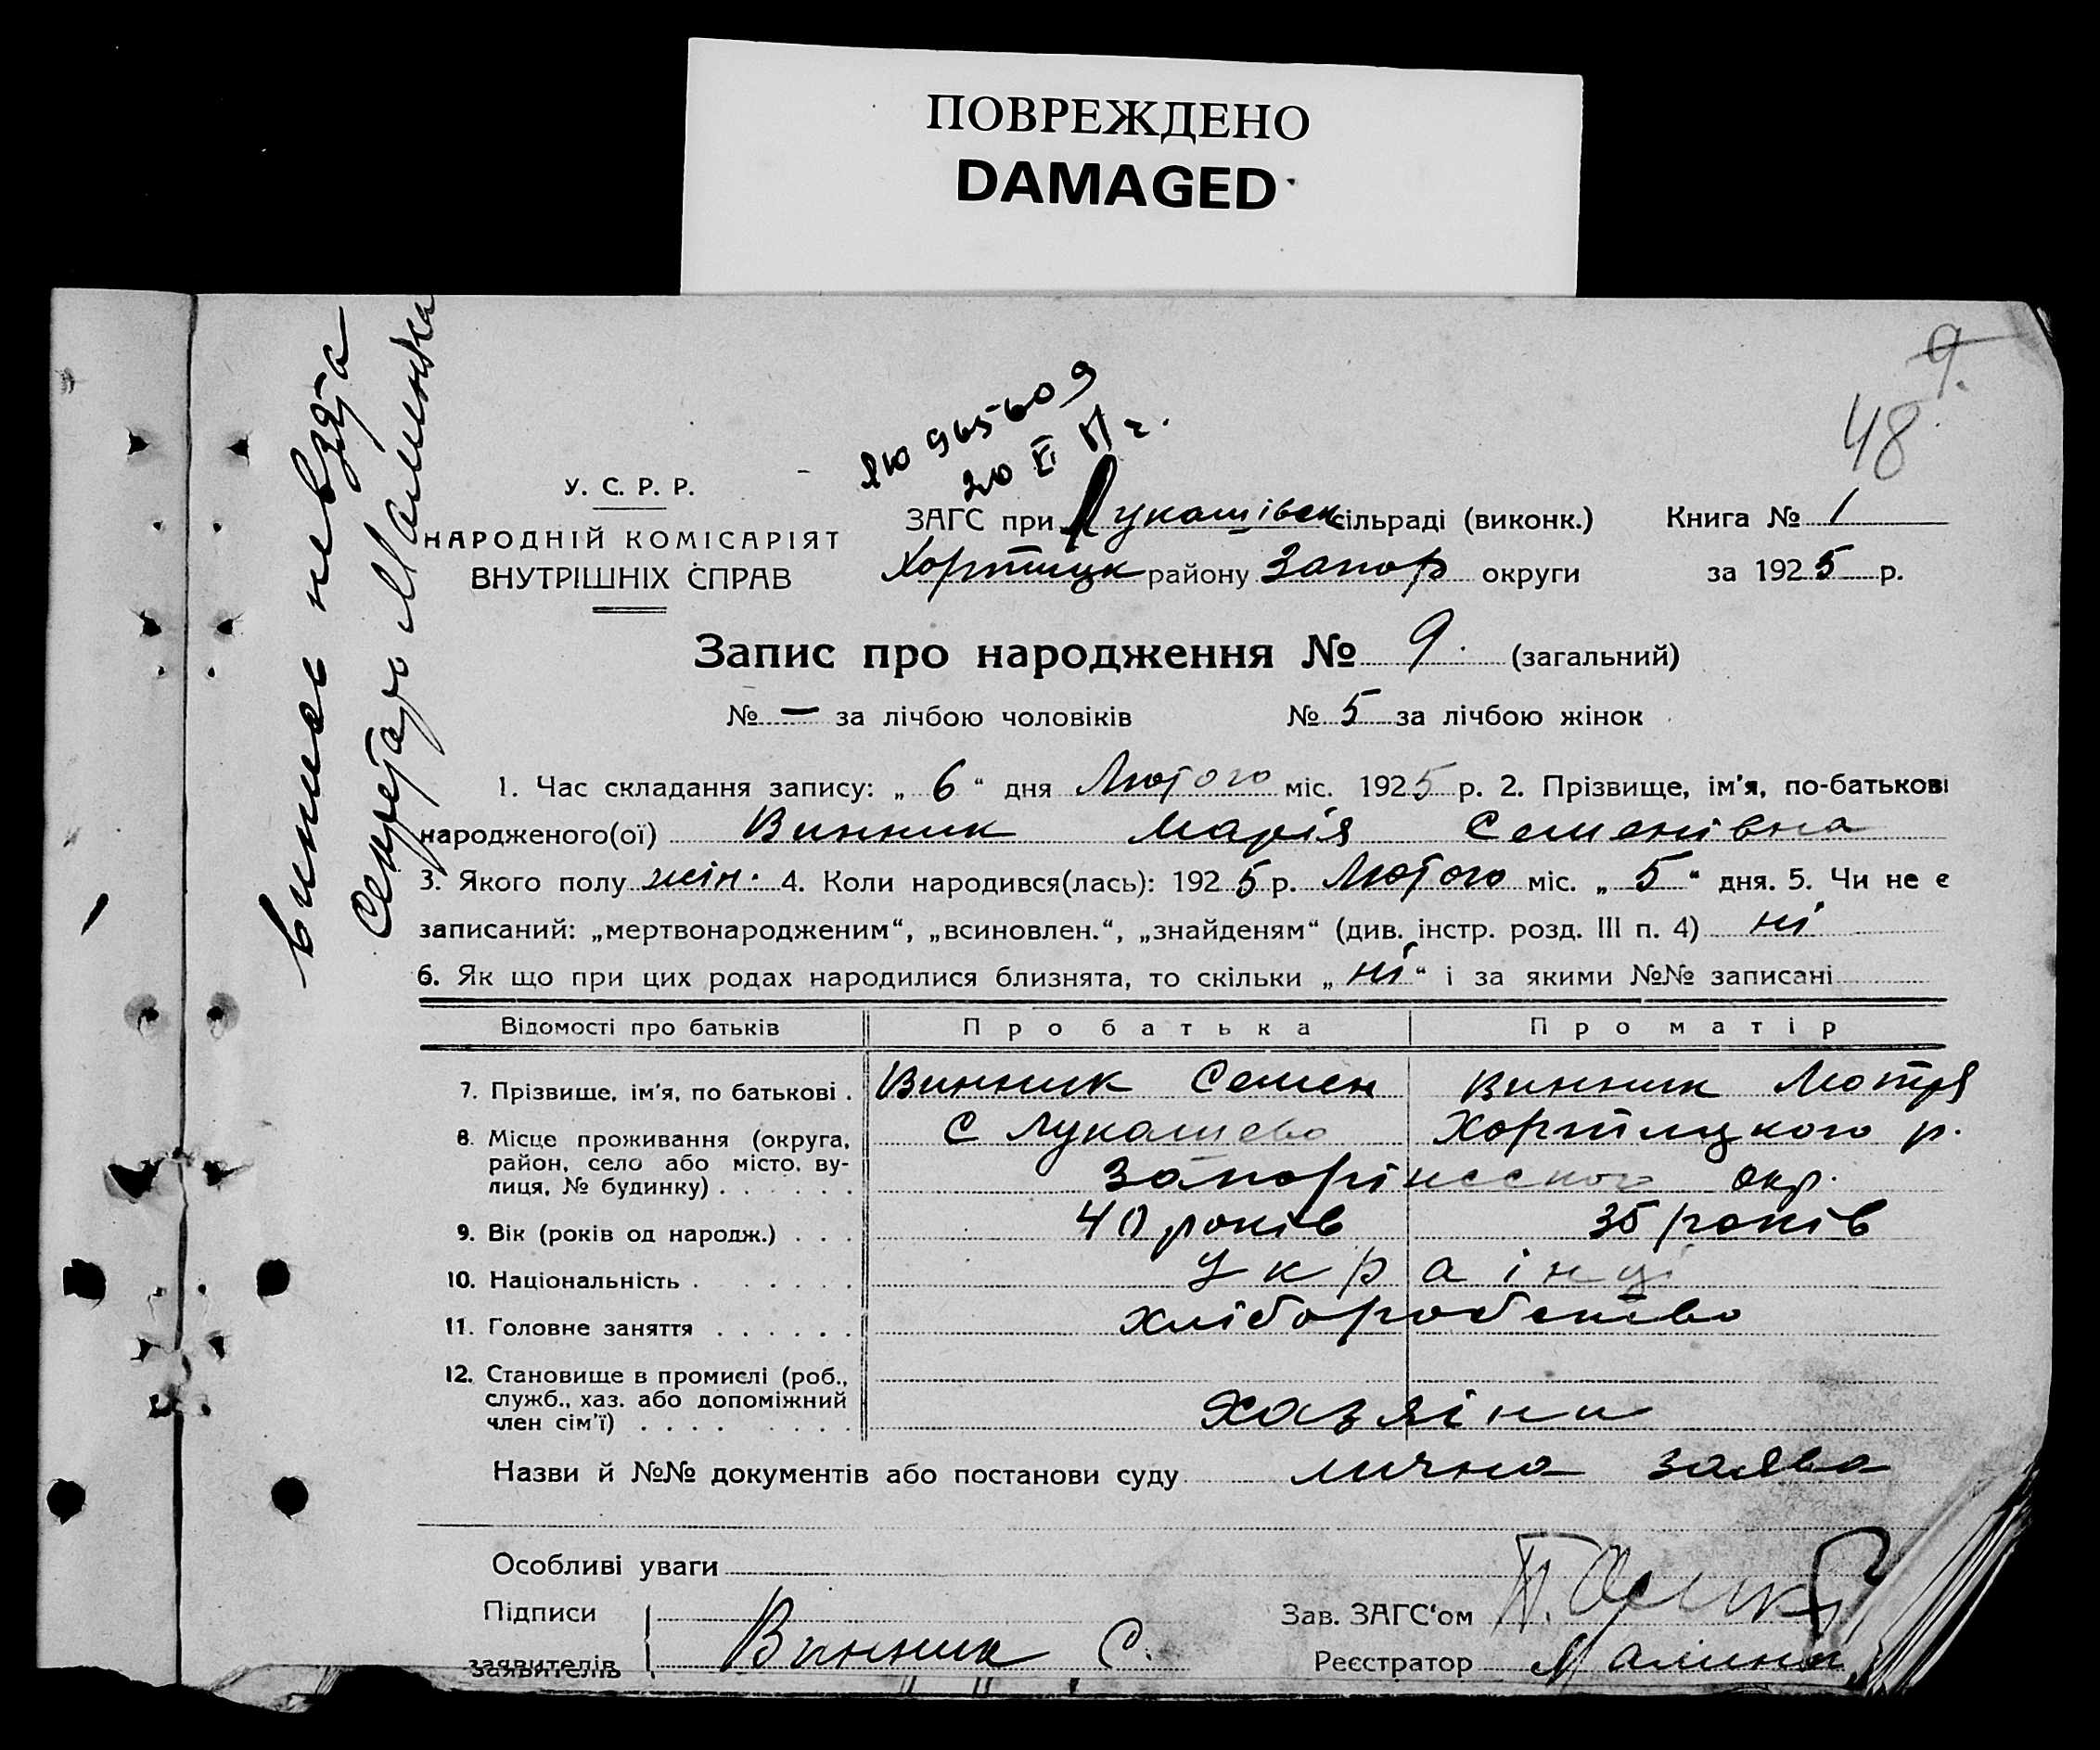 ПОВРЕЖДЕНО
DAMAGED
9.
48
ЯЮ 965609
20 XI г.
У. С. Р. Р.
НАРОДНІЙ КОМІСАРІЯТ
ВНУТРІШНІХ СПРАВ
ЗАГС при Лукашівск сільраді (виконк.) Книга № 1
Хортицк району Запор округи за 1925 р.
Запис про народження № 9. (загальний)
№ — за лічбою чоловіків № 5 за лічбою жінок
1. Час складання запису: „ 6 “ дня Лютого міс. 1925 р. 2. Прізвище, ім'я, по-батькові
народженого(ої) Винник Марія Семенівна
3. Якого полу жін. 4. Коли народився(лась): 1925 р. Лютого міс. „ 5 “ дня. 5. Чи не є
записаний: „мертвонародженим“, „всиновлен.“, „знайденям“ (див. інстр. розд. III п. 4) ні
6. Як що при цих родах народилися близнята, то скільки „ ні “ і за якими №№ записані
Відомості про батьків Про батька Про матір
7. Прізвище, ім'я, по батькові . Винник Семен Винник Мотря
8. Місце проживання (округа, С Лукашево Хортицкого р.
район, село або місто, ву-
лиця, № будинку) . . . . . . Запоріжского окр.
9. Вік (років од народж.) . . . 40 років 35 років
10. Національність . . . . . . . Украінці
11. Головне заняття . . . . . . хліборобство
12. Становище в промислі (роб.,
служб., хаз. або допоміжний
член сім'ї) . . . . . . . . хазяіни
Назви й №№ документів або постанови суду лична заява
Особливі уваги
Підписи Зав. ЗАГС'ом П.
заявителів Винник С. Реєстратор
випис не взята
Секретарь